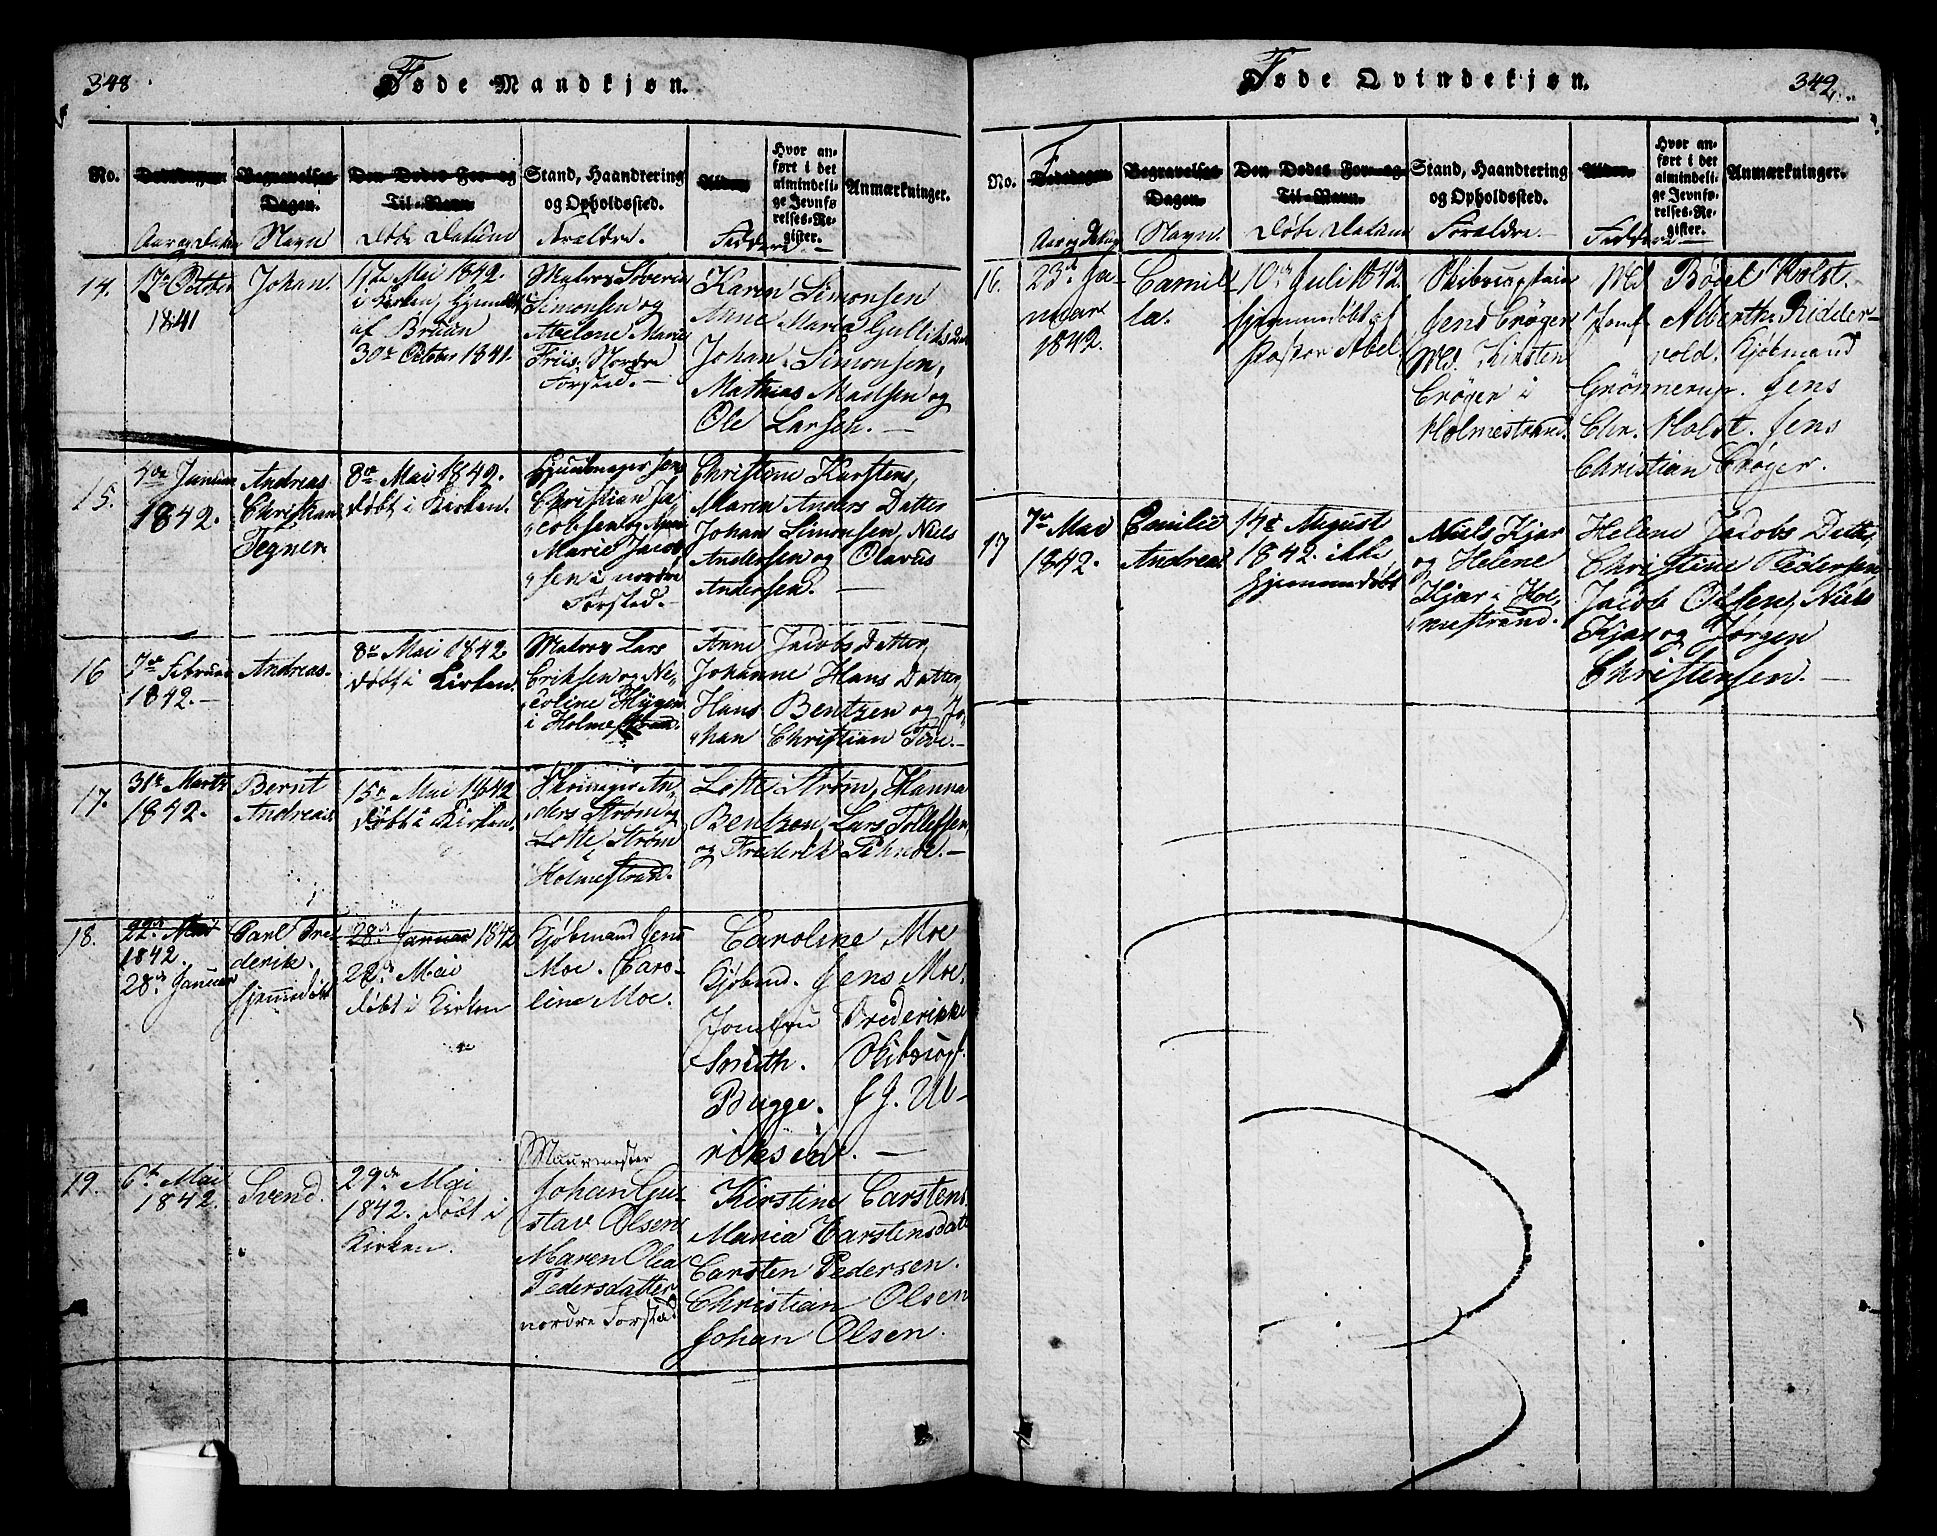 348.
Føde Mandkjøn.
No.
Dødsdagen
Begravelses
Dagen.
Den Dødes For- og
Til-Navn
Stand, Haandtering
og Opholdssted.
Alder
Hvor an-
ført i det
almindeli-
ge Jevnfø-
relses-Re-
gister.
Anmærkninger.
Aar og Datum
Navn
Døbe Datum
Forældre.
Faddere.
14.
17de October
1841
Johan.
17de Mai 1842.
i Kirken, Hjemdøbt
af Bruun
30te October 1841.
Matros Syverin
Simonsen og
Abelone Marie
Friis. Nordre
Forsted.
Karen Simonsen
Anne Maria Gulliksdat
Johan Simonsen,
Mathias Madsen og
Ole Larsen.
15.
4de Januar
1842.
Andreas
Christian
Tegner
8de Mai 1842.
døbt i Kirken.
Christian Ja-
cobsen og Anne
Marie Jacob-
sen i nordre
Forsted.
Christine Karstens,
Maren Anders Datter
Johan Simonsen, Niels
Andersen og Olavus
Andersen.
16
7de Februar
1842.
Andreas.
8de Mai 1842
døbt i Kirken.
Matros Lars
Eriksen og Ni-
coline Hygen
i Holmestrand.
Anne Jacobs Datter,
Johanne Hans Datter,
Hans Bentzen og Jo-
han Christian Tive.
17.
31te Marts
1842.
Bernt
Andreas
15de Mai 1842
døbt i Kirken.
Skrinager An-
ders Strøm og
Lotte Strøm
Holmestrand.
Lotte Strøm, Hanna
Bentzon, Lars Tollefsen,
og Frederik Schnoe.
18.
22de Mai
1842.
28de Januar
Carl Fre-
derik.
Hjemdøbt
28de Januar 1842
22de Mai
døbt i Kirken
Kjøbmand Jens
Moe. Caro-
line Moe.
Caroline Moe
Kjøbmd. Jens Moe.
Jomfru Frederikke
Smith. Skibscapt.
Bugge. J J. Ul-
riksen.
19.
6te Mai
1842.
Svend.
29de Mai
1842. døbt i
Kirken.
Maurmester
Johan Gu-
stav Olsen
Maren Olea
Pedersdatter
nordre Forstad
Kirstine Carstens
Maria Karstensdatt
Carsten Pedersen.
Christian Olsen
Johan Olsen.
349.
Føde Qvindekjøn.
No.
Dødsdagen
Begravelses
Dagen.
Den Dødes For- og
Til-Navn.
Stand, Haandtering
og Opholdssted.
Alder.
Hvor an-
ført i det
almindeli-
ge Jevnfø-
relses-Re-
gister.
Anmærkninger.
Aar og Datum
Navn.
Døbe Datum
Forældre.
Faddere
16.
23de Ja-
nuar
1842.
Camil-
la.
10de Juli 1842.
hjemmedøbt af
Pastor Abel.
Skibscaptain
Jens Crøger
Md. Kirsten
Crøger i
Holmestrand.
Md. Bødel Holst.
Jomf. Alberth. Ridder-
vold. Kjøbmand
Grønnerup. Jens
Chr. Holst. Jens
Christian Crøger.
17
7de Mai
1842.
Emilie
Andrea
14de August
1842. ikke
hjemmedøbt
Niels Kjær
og Helene
Kjær i Hol-
mestrand.
Helene Jacobs Datter,
Christine Pedersen
Jacob Olsen, Niels
Kjær og Jørgen
Christensen.